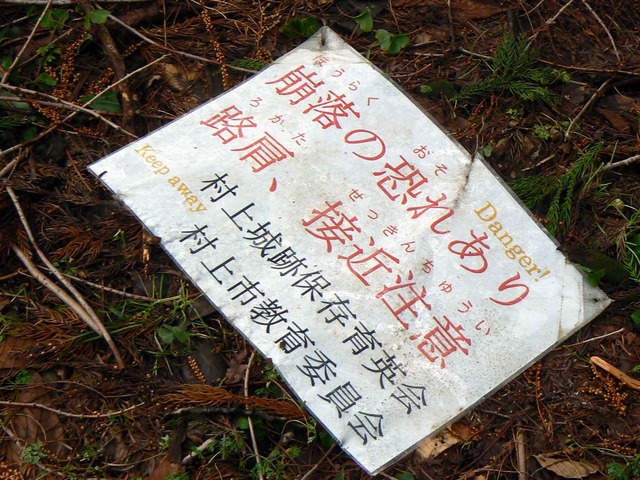 ほうらく おそ
崩落の恐れあり Danger!
ろかた せっきんちゅうい
路肩、接近注意
Keep away
村上城跡保存育英会
村上市教育委員会